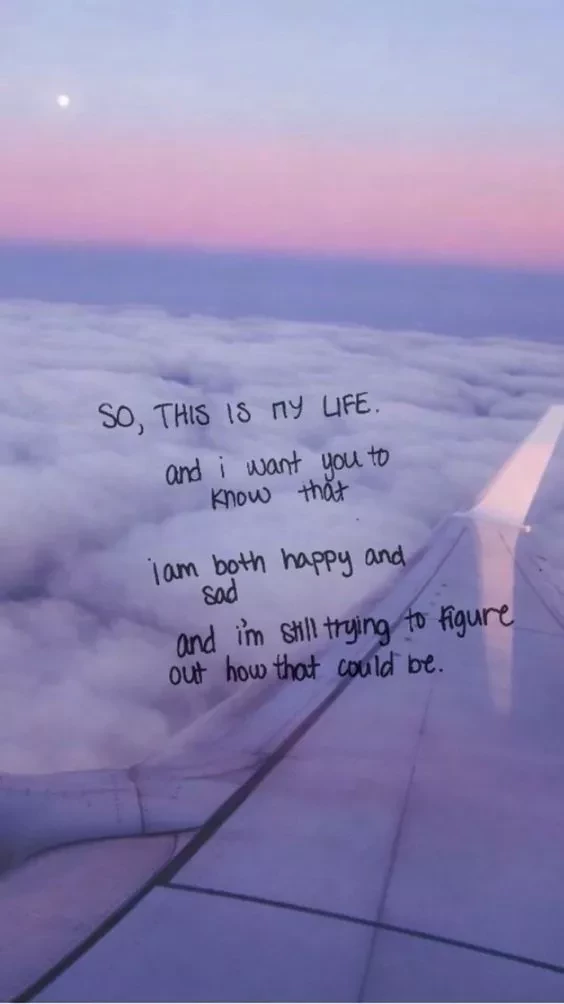 SO, THIS IS MY LIFE.
and i want you to
know that
i am both happy and
sad
and i'm still trying to figure
out how that could be.